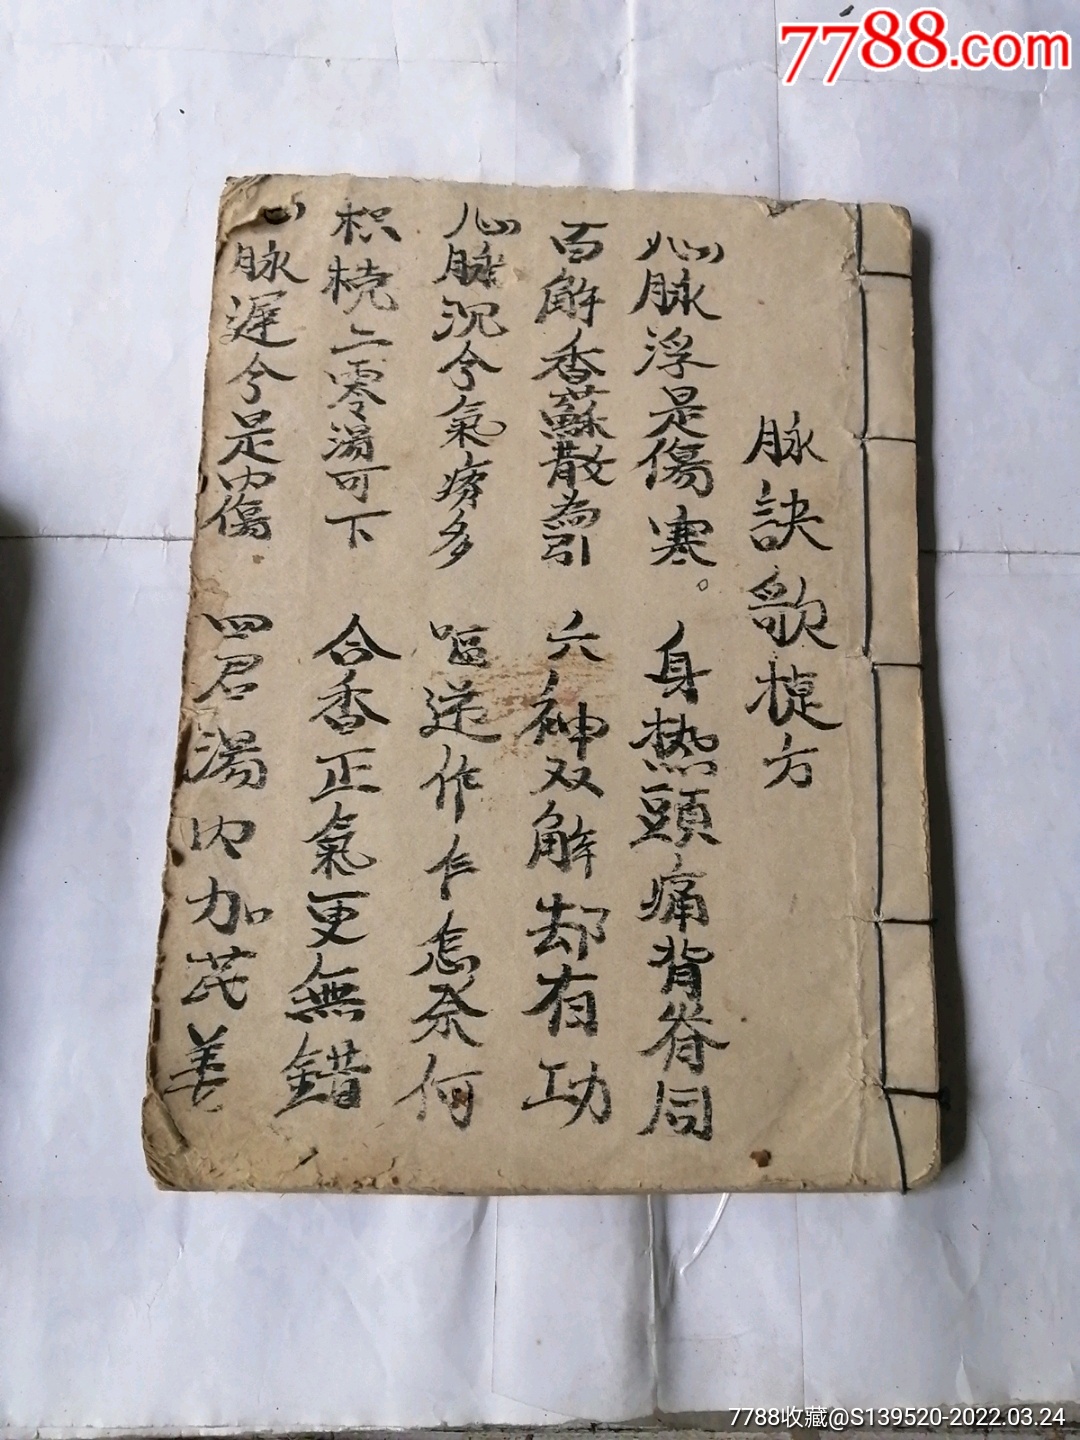 7788.com
脉訣歌㨗方
心脉浮是傷寒。 身热頭痛背脊同
百解香蘇散為引 六神双解却有功
心脉沉今氣痞多 嘔逆作乍怎奈何
枳桔二零湯可下 合香正氣更無錯
心脉遲今是内傷 四君湯内加芪姜
7788收藏@S139520-2022.03.24